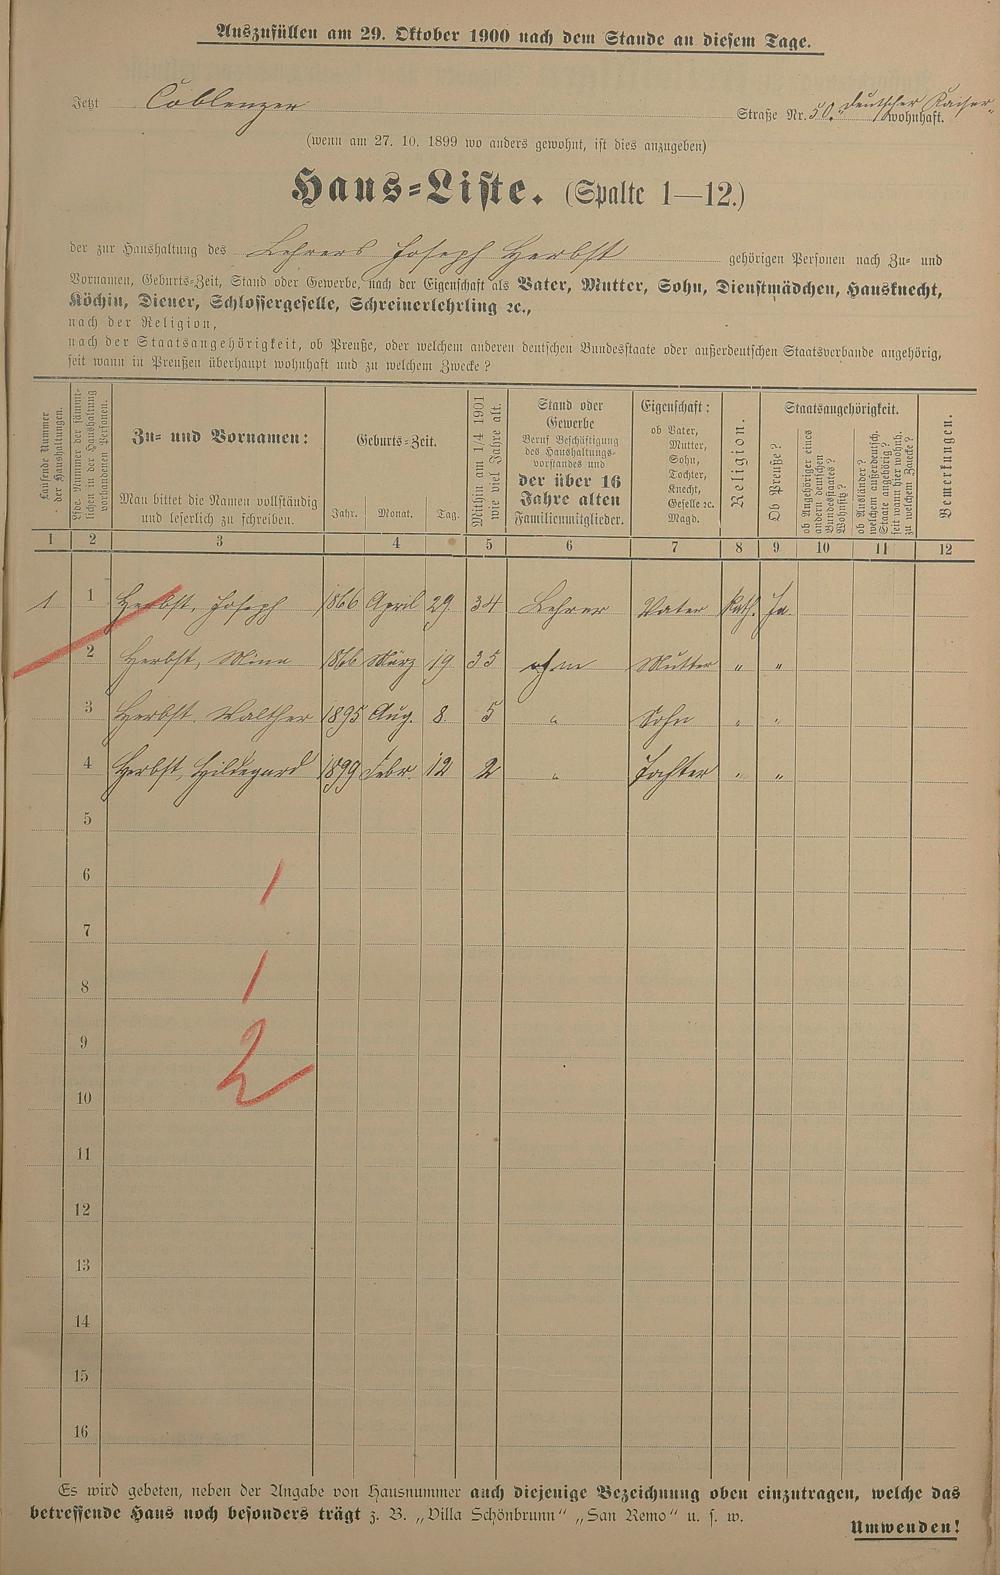 Auszufüllen am 29. Oktober 1900 nach dem Stande an diesem Tage.
Jetzt Coblenzer Straße Nr. 50. "Deutscher Kaiser" wohnhaft.
(wenn am 27. 10. 1899 wo anders gewohnt, ist dies anzugeben)
Haus-Liste. (Spalte 1—12.)
der zur Haushaltung des Lehrers Joseph Herbst gehörigen Personen nach Zu- und
Vornamen, Geburts-Zeit, Stand oder Gewerbe, nach der Eigenschaft als Vater, Mutter, Sohn, Dienstmädchen, Hausknecht,
Köchin, Diener, Schlossergeselle, Schreinerlehrling ꝛc.,
nach der Religion,
nach der Staatsangehörigkeit, ob Preuße, oder welchem anderen deutschen Bundesstaate oder außerdeutschen Staatsverbande angehörig,
seit wann in Preußen überhaupt wohnhaft und zu welchem Zwecke?
Laufende Nummer
der Haushaltungen.
Lfde. Nummer der sämmt-
lichen in der Haushaltung
vorhandenen Personen.
Zu- und Vornamen:
Man bittet die Namen vollständig
und leserlich zu schreiben.
Geburts-Zeit.
Jahr. Monat. Tag.
Mithin am 1/4 1901
wie viel Jahre alt.
Stand oder
Gewerbe
Beruf Beschäftigung
des Haushaltungs-
vorstandes und
der über 16
Jahre alten
Familienmitglieder.
Eigenschaft:
ob Vater,
Mutter,
Sohn,
Tochter,
Knecht,
Geselle ꝛc.
Magd.
Religion.
Staatsangehörigkeit.
Ob Preuße?
ob Angehöriger eines
andern deutschen
Bundesstaates?
Wohnsitz?
ob Ausländer?
welchem außerdeutsch.
Staate angehörig?
seit wann hier wohnh.
zu welchem Zwecke?
Bemerkungen.
1 2 3 4 5 6 7 8 9 10 11 12
1 1 Herbst, Joseph 1866 April 29. 34 Lehrer Vater kath. Ja.
2 Herbst, Minna 1866 März 19. 35 ohne Mutter " "
3 Herbst, Walther 1895 Aug. 8. 5 " Sohn " "
4 Herbst, Hildegard 1899 Febr. 12 2 " Tochter " "
5
6 1
7
8 1
9
10 2
11
12
13
14
15
16
Es wird gebeten, neben der Angabe von Hausnummer auch diejenige Bezeichnung oben einzutragen, welche das
betreffende Haus noch besonders trägt z. B. „Villa Schönbrunn" „San Remo" u. s. w.
Umwenden!